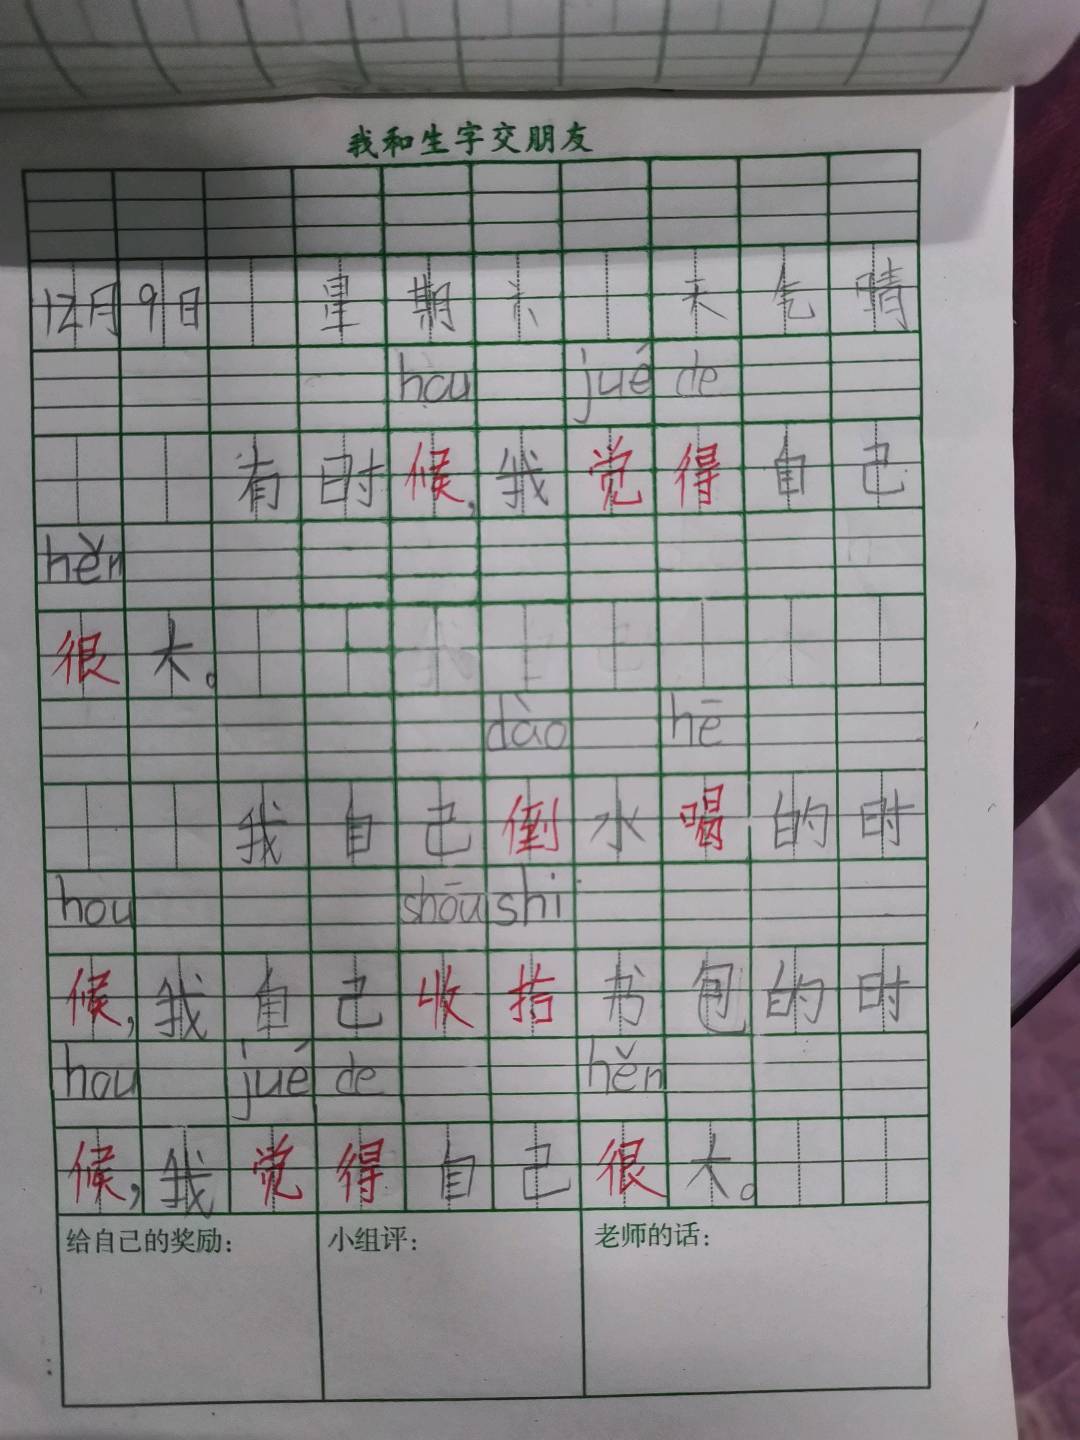 我和生字交朋友
12月9日 星期六 天气晴
hou jué de
有时候,我觉得自己
hěn
很大。
dào hē
我自己倒水喝的时
hou shōu shi
候,我自己收拾书包的时
hou jué de hěn
候,我觉得自己很大。
给自己的奖励: 小组评: 老师的话: